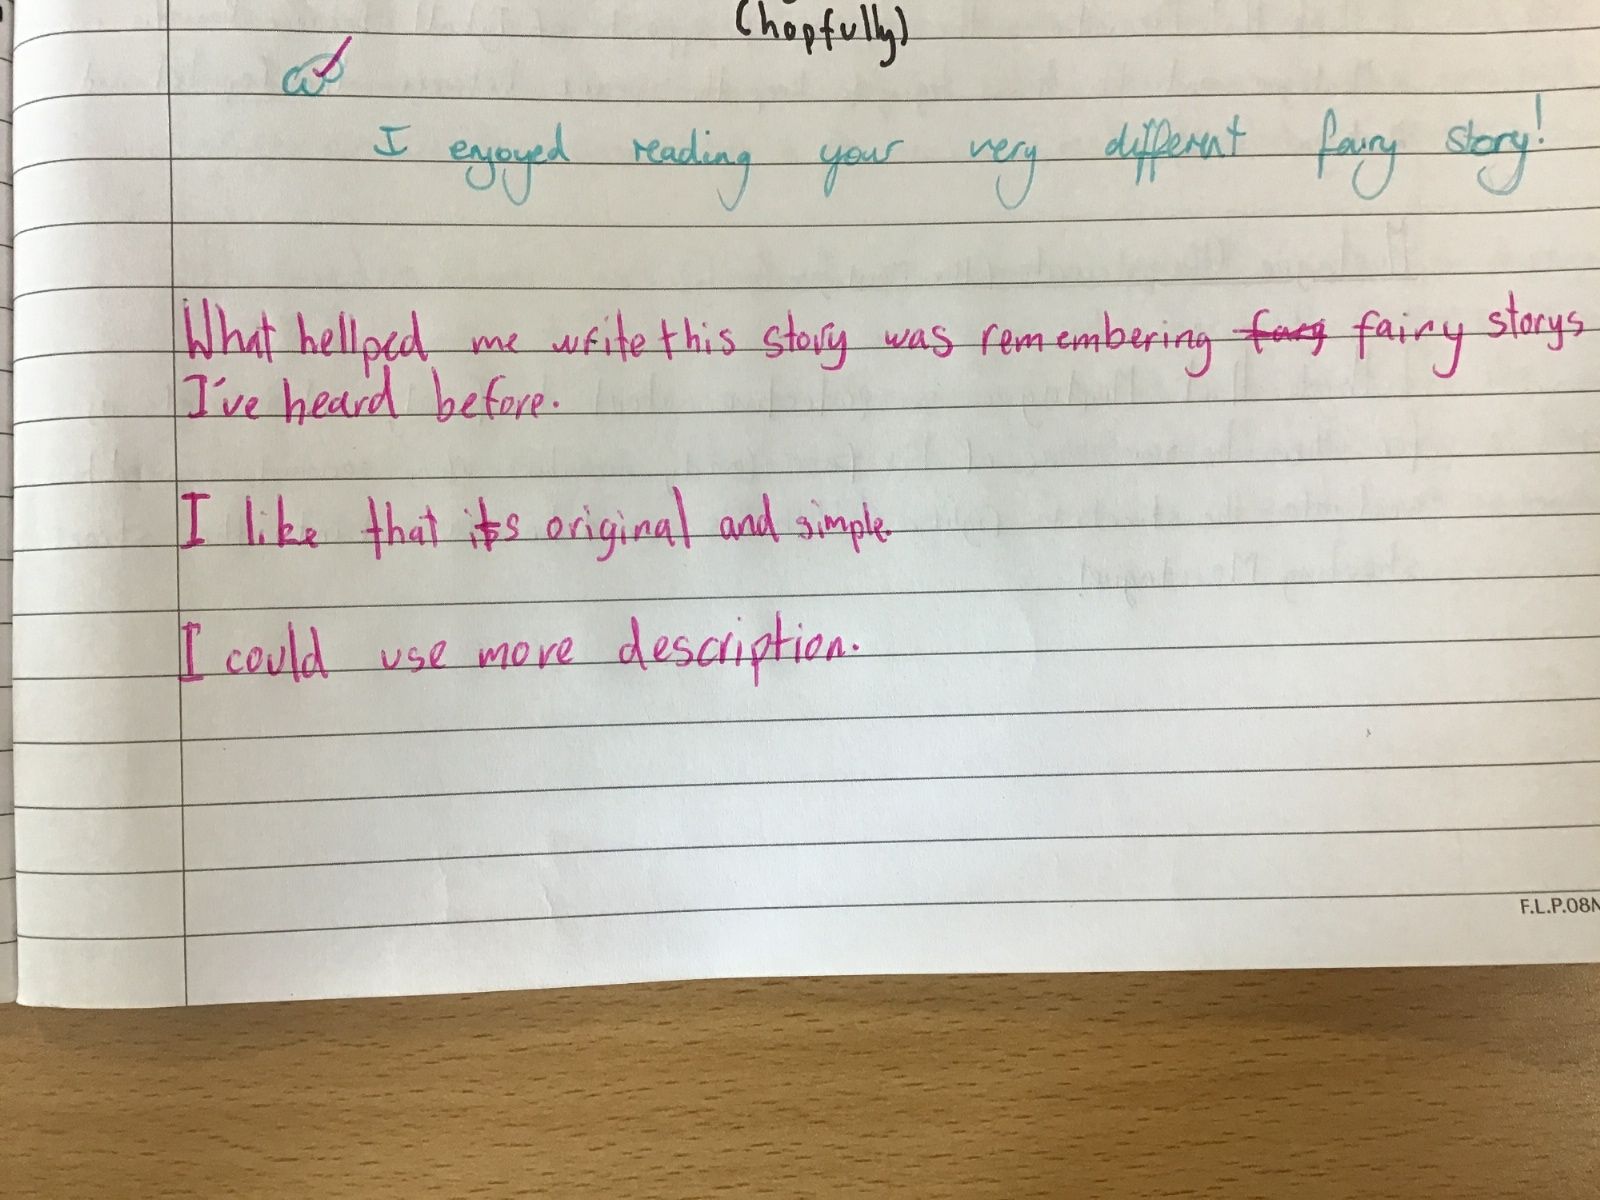 (hopfully)
I enjoyed reading your very different fairy story!
What hellped me write this story was remembering fairy storys
I've heard before.
I like that its original and simple.
I could use more description.
F.L.P.08